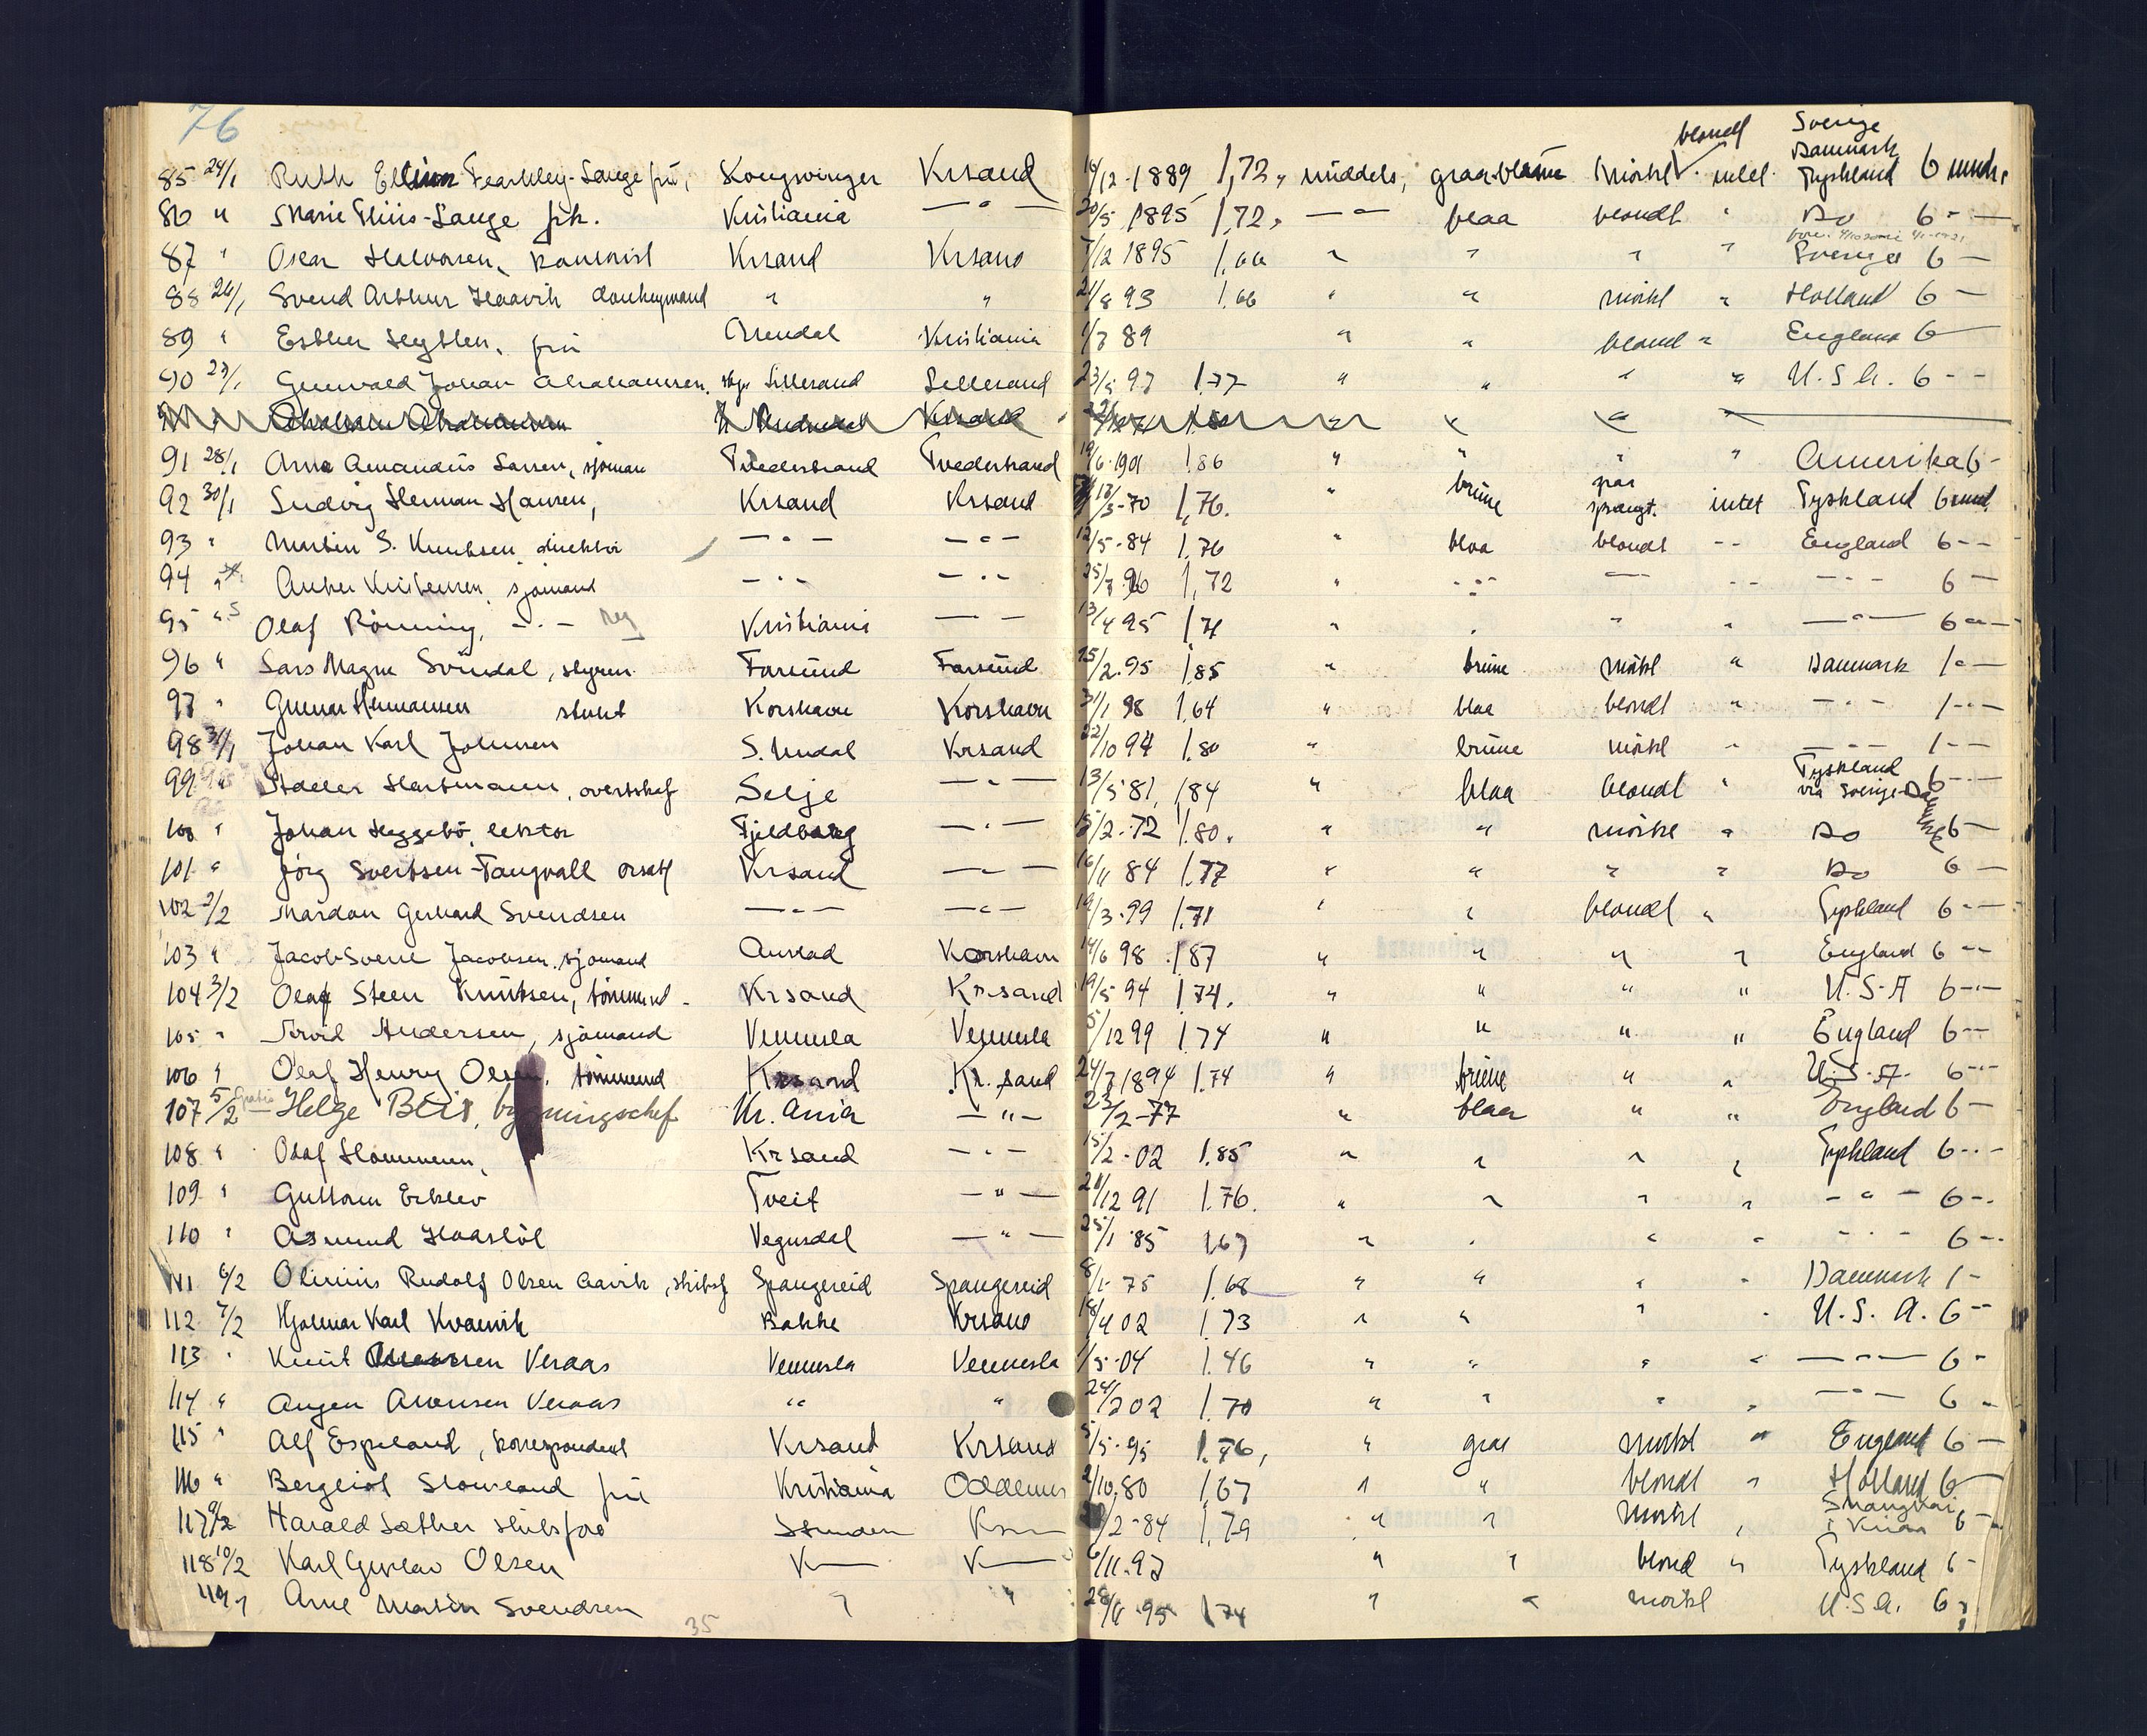 76
85 24/1 Ruth Ellinor Fearnley-Lange frü, Kongsvinger Krsand 14/12-1889 1,72, middels, graa-blaa mörkt blondt intet Sverige Danmark Tyskland 6 mndr.
86 " Marie Lange frk. Kristiania — " — 20/5 1895 1,72, — " — blaa blondt " Do 6 - —
87 " Oscar Halvorsen, kontorist Krsand Krsand 7/12 1895 1.66 " " " " Sverige 6 —
88 26/1 Svend Arthur Haavik " " 21/8 93 1.66 " " mörkt " Holland 6 —
89 " Esther Heyblen, frü Arendal Kristiania 1/7 89 " " blond " England 6 —
90 27/1 Gunvald Johan Abrahamsen, Lillesand Lillesand 23/5 97 1.77 " " " " U.S.A. 6 - -
91 28/1 Arne Amandus Larsen, sjöman Tvedestrand Tvedestrand 19/6-901 1.86 " " " " Amerika 6 -
92 30/1 Ludvig Herman Hansen, Krsand Krsand 18/3-70 1,76. " brüne graa sprengt. intet Tyskland 6 mnd.
93 " Martin S. Knudsen direktör — " — — " — 12/5-84 1.76 " blaa blondt - - England 6 - -
94 " Anker Kristensen, sjömand — " — — " — 25/7 96 1,72 " - " - — - - — " — 6 —
95 " Olaf Rönning, — " — Kristiania — " — 13/4 95 1.71 " " " " — " — 6 — " —
96 " Lars Magne Svindal, styrm. Farsünd Farsünd 25/2.95 1.85 " brüne mörkt " Danmark 1 - —
97 " Gunnar Hermansen stuert Korshavn Korshavn 31/1 98 1.64 " blaa blondt " — " — 1 - —
98 31/1 Johan Karl Johnsen S. Undal Krsand 22/10 94 1.80 " brüne mörkt " — " — 1 - —
99 " Adeler Hartmann, Selje — " — 13/5 81, 1.84 " blaa blondt " Tyskland via Sverige-Danmark 6 - —
100 " Johan Heggebö, lektor Fjeldberg — " — 15/2.72 1.80. " " mörke " Do 6 —
101 " Jörg Svertsen-Tangvall Krsand — " — 16/11 84 1.77 " " " " Do 6 —
102 2/2 Mardon Gerhard Svendsen — " — — " — 19/3.99 1.71 " " blondt " Tyskland 6 - —
103 " Jacob Sverre Jacobsen, sjömand Austad Korshavn 14/6 98 1.87 " " " " England 6 - -
104 3/2 Olaf Steen Knütsen, tömmerm. Krsand Kr.sand 19/5 94 1.74. " " " " U.S.A 6 - —
105 " Arvid Andersen, sjömand Vennesla Vennesla 5/12 99 1.74 " " " " England 6 - -
106 " Olaf Henry Olsen, tömmermd Krsand Kr. sand 24/7 1894 1.74 " brüne " " U.S.A. 6 - —
107 5/2 Gratis Helge Blix, bygningschef Kr.ania — " — 23/2-77 " blaa " " England 6 —
108 " Olaf Hommeren, Krsand — " — 15/2-02 1.85 " " " " Tyskland 6 - - -
109 " Guttorm Eiklev Tveit — " — 21/12 91 1.76. " " " " — " — 6 - -
110 " Asmund Haaslöl Vegusdal — " — 25/1 85 1.67 " " " " — " — 6 - -
111 6/2 Olinius Rudolf Olsen Aavik, Spangereid Spangereid 8/1-75 1.68 " " " " Danmark 1 -
112 7/2 Hjalmar Karl Kvaevik Bakke Krsand 18/4 02 1.73 " " " " U.S.A. 6 - -
113 " Knüt Aanensen Veraas Vennesla Vennesla 1/5-04 1.46 " " " " — " — 6 -
114 " Aagen Aanensen Veraas " " 24/2 02 1.70 " " " " — " — 6 -
115 " Alf Espeland, korrespondent Krsand Krsand 5/5-95 1.76, " graa mörkt " England 6 —
116 " Bergliot Stousland frü Kristiania Oddernes 2/10.80 1.67 " " blondt " Holland 6
117 9/2 Harald Sæther skibsförer K— 2-84 1,79 " " Mörkt " Shanghai i Kina 6 - -
118 10/2 Karl Gustav Olsen K— K— 6/11.97 " " blond " Tyskland 6 -
119 " Arne Martin Svendsen " " 28/11-95 1.74 " " mörkt U.S.A. 6
35